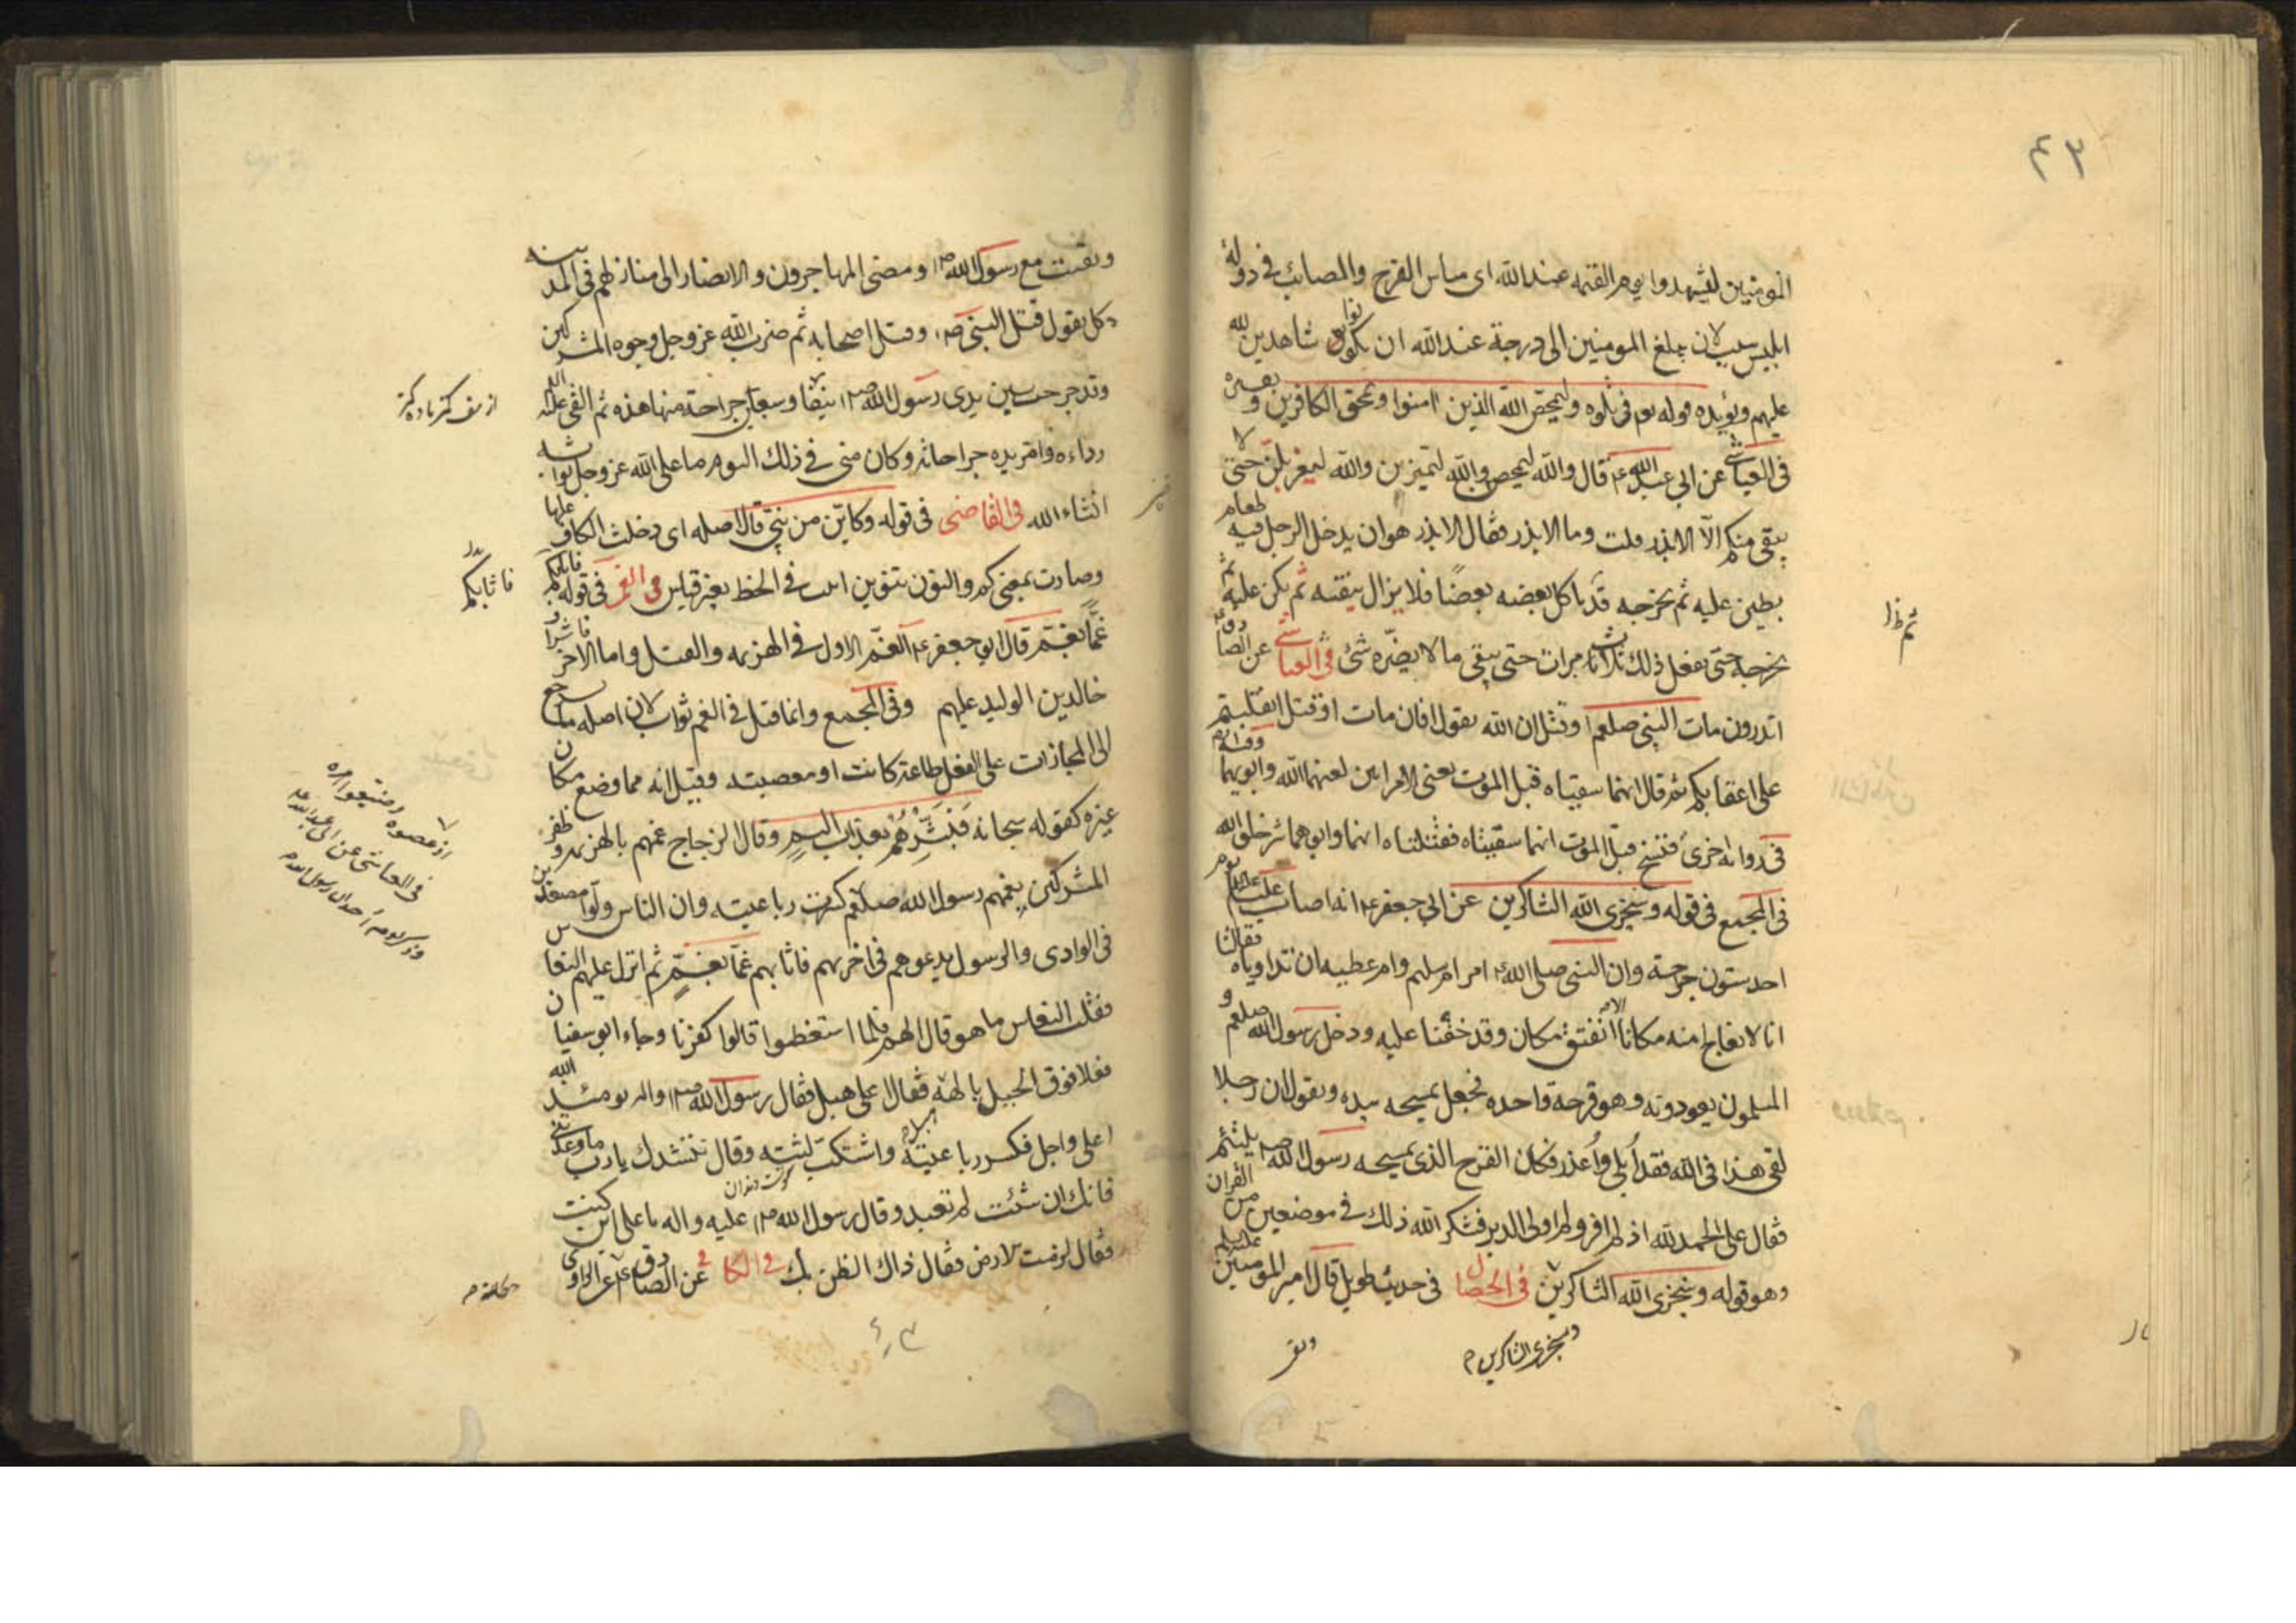 ٤٣
المومنين ليشهدوا يوم القيمة عند الله اى مساس القرح والمصائب فى دولة
ابليس سبب لان يبلغ المومنين الى درجة عند الله ان يكونوا شاهدين لله
عليهم ويؤيده قوله تع فى تلوه وليمحص الله الذين امنوا ويمحق الكافرين و
فى العياشى عن ابى عبد الله ع قال والله ليمحص والله لتميزن والله ليغربلن حتى لا
يبقى منكم الا الانذر قلت وما الانذر فقال الانذر هو ان يدخل الرجل فيه طعام
يطين عليه ثم يخرجه قد ياكل بعضه بعضا فلا يزال ينقيه ثم يكن عليه ثم
يخرجه حتى يفعل ذلك ثلاث مرات حتى يبقى ما لا يضره شئ فى العياشى عن الصادق
ثم ظ
اتدرون مات النبى صلعم او قتل ان الله يقول افان مات او قتل انقلبتم
على اعقابكم ثم قال انهما سقيتاه قبل الموت يعنى الامراتين لعنهما الله وابويهما
فى رواية اخرى فسخ قبل الموت انهما سقيتاه فقتلتاه انهما وابوهما شر خلق الله
فى المجمع فى قوله وسيجزى الله الشاكرين عن ابى جعفر ع انه اصاب عليا ع يوم
احد ستون جرحة وان النبى صلى الله امر ام سليم وام عطية ان تداوياه فقالتا
انا لا نعالج منه مكانا الا انفتق مكان وقد خفنا عليه ودخل رسول الله صلعم و
المسلمون يعودونه وهو قرحة واحده فجعل يمسحه بيده ويقول ان رجلا
لقى هذا فى الله فقد ابلى واعذر فكان القرح الذى يمسحه رسول الله ص يلتئم
فقال على الحمد لله اذ لم افر ولم اولى الدبر فشكر الله ذلك فى موضعين من القران
وهو قوله وسيجزى الله الشاكرين فى الخصال فى حديث طويل قال امير المومنين عليه السلم
وسنجزى الشاكرين
وبقيت مع رسول الله ص ومضى المهاجرون والانصار الى منازلهم فى المدينة
كل يقول قتل النبى ص وقتل اصحابه ثم ضرب الله عز وجل وجوه المشركين
وقد جرحت بين يدى رسول الله ص نيفا وسبعين جراحة منها هذه ثم القى
رداءه وامر يده جراحاته وكان منى فى ذلك اليوم ما على الله عز وجل ثوابه
انشاء الله فى القاضى فى قوله وكاين من نبى قال اصله اى دخلت الكاف عليها
وصارت بمعنى كم والنون تنوين اثبت فى الخط بغير قياس فى القمى فى قوله فاثابكم
فاثابكم
غما بغم قال ابو جعفر ع الغم الاول فى الهزيمة والقتل واما الاخر فاشراف
خالد بن الوليد عليهم وفى المجمع وانما قيل فى الغم ثواب لان اصله ما يرجع
الى المجازات على الفعل طاعة كانت او معصية وقيل انه مما وضع مكان
غيره كقوله سبحانه فَبَشِّرْهُمْ بعذاب اليم وقال الزجاج غمهم بالهزيمة وظفر
المشركين بغمهم رسول الله صلعم كسرت رباعيته وان الناس ولوا مصعدين
فى الوادى والرسول يدعوهم فى اخريهم فاثابهم غما بغم ثم انزل عليهم النعاس
فقلت النعاس ما هو قال الهم فلما استيقظوا قالوا كفرنا وجاء ابو سفيان
فعلا فوق الجبل بالهه فقال اعلى هبل فقال رسول الله ص واله يومئذ الله
اعلى واجل فكسر رباعيته واشتكت لثته وقال ننشدك يا رب ما وعدتنى
فانك ان شئت لم تعبد وقال رسول الله ص عليه واله يا على اين كنت
فقال لزقت الارض فقال ذاك الظن بك فى الكافى عن الصادق ع